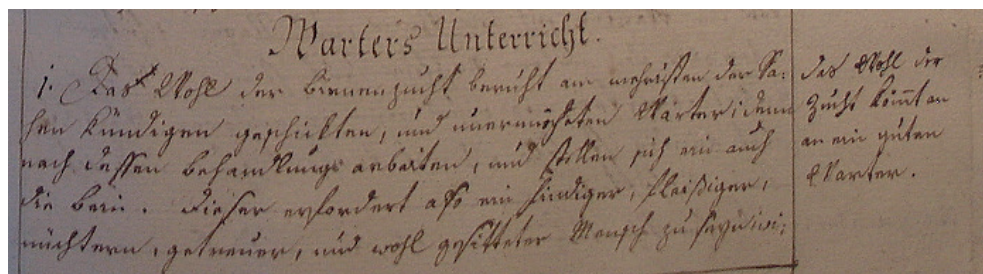 Warters Unterricht.
1. Das Wohl der bienenzucht beruht am mehristen der Sa-
chen kündigen geschickten, und unermüdeten Warter; denn
nach dessen behandlungs arbeiten, und stellen sich ein auch
die bein. Dieser erfordert also ein findiger, fleißiger,
nüchtern, getreuer, und wohl gesitteter Mensch zu seyn
das Wohl der
Zucht kömt an
an ein guten
Warter.